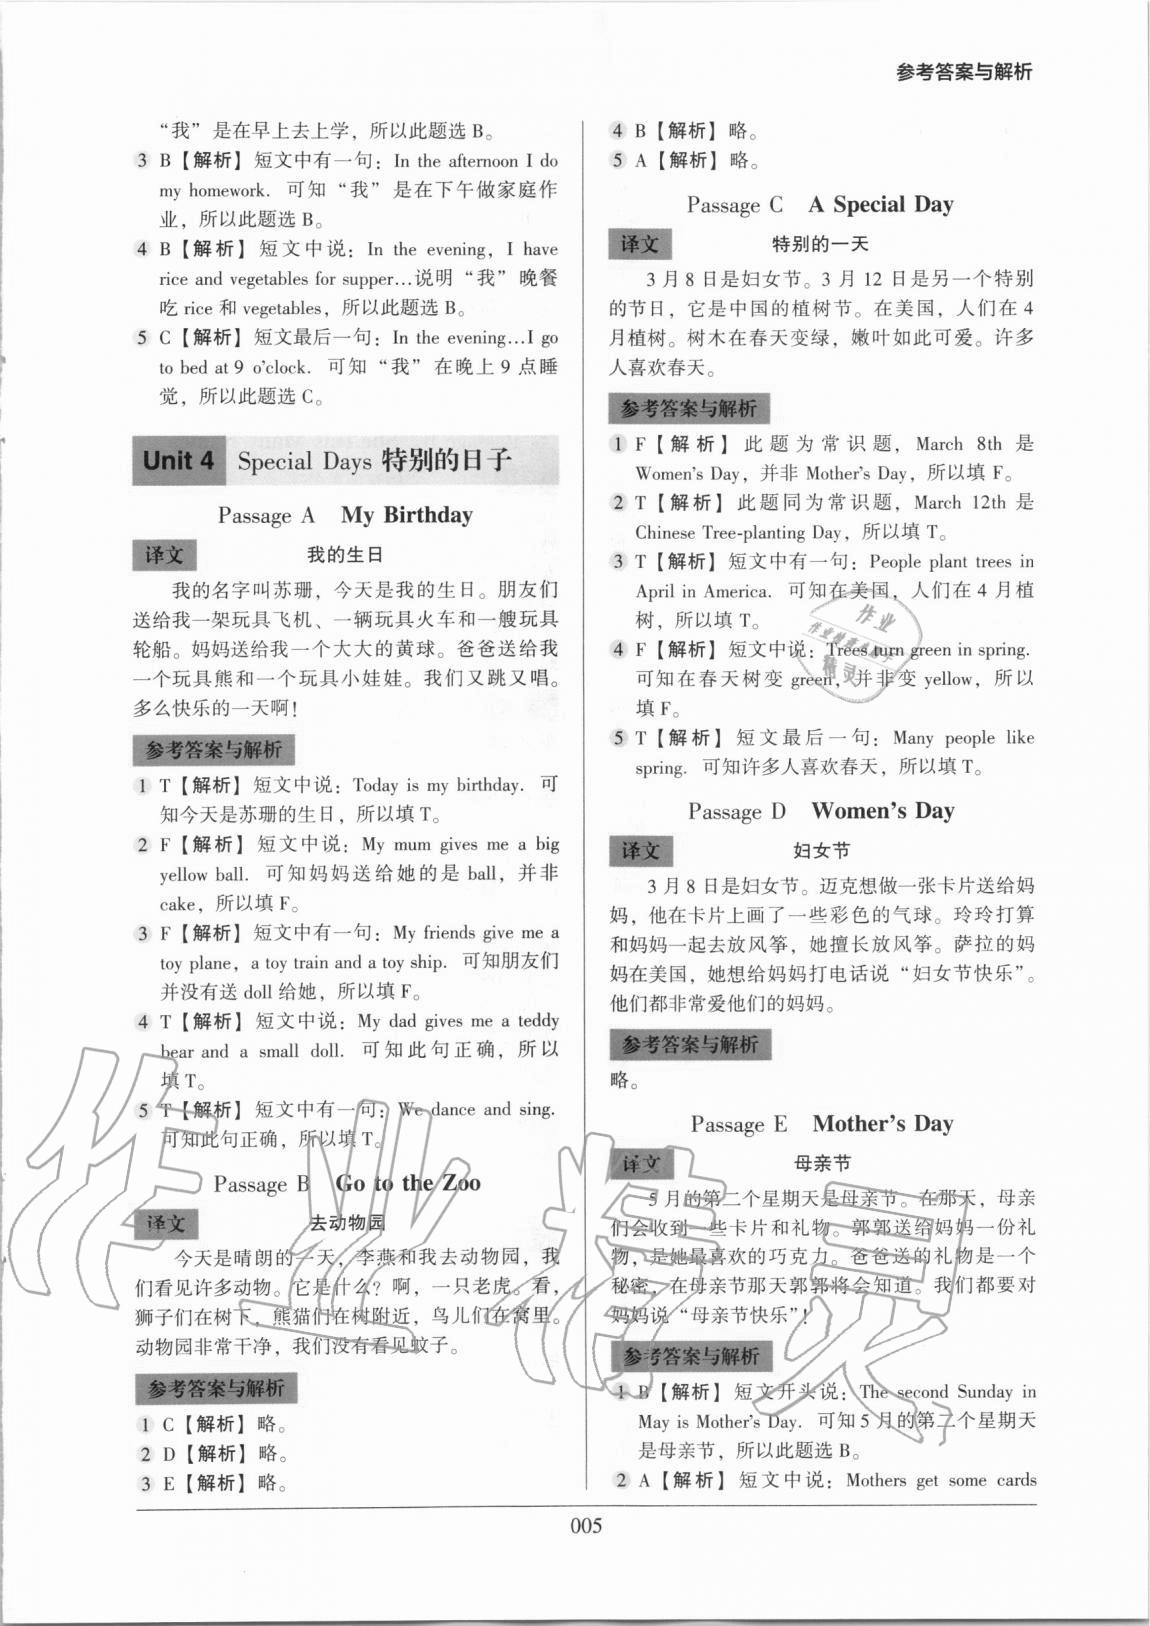 参考答案与解析
“我”是在早上去上学，所以此题选 B。
3 B【解析】短文中有一句：In the afternoon I do
my homework. 可知“我”是在下午做家庭作
业，所以此题选 B。
4 B【解析】短文中说：In the evening, I have
rice and vegetables for supper…说明“我”晚餐
吃 rice 和 vegetables，所以此题选 B。
5 C【解析】短文最后一句：In the evening…I go
to bed at 9 o'clock. 可知“我”在晚上 9 点睡
觉，所以此题选 C。
Unit 4 Special Days 特别的日子
Passage A My Birthday
译文 我的生日
我的名字叫苏珊，今天是我的生日。朋友们
送给我一架玩具飞机、一辆玩具火车和一艘玩具
轮船。妈妈送给我一个大大的黄球。爸爸送给我
一个玩具熊和一个玩具小娃娃。我们又跳又唱。
多么快乐的一天啊！
参考答案与解析
1 T【解析】短文中说：Today is my birthday. 可
知今天是苏珊的生日，所以填 T。
2 F【解析】短文中说：My mum gives me a big
yellow ball. 可知妈妈送给她的是 ball，并非
cake，所以填 F。
3 F【解析】短文中有一句：My friends give me a
toy plane, a toy train and a toy ship. 可知朋友们
并没有送 doll 给她，所以填 F。
4 T【解析】短文中说：My dad gives me a teddy
bear and a small doll. 可知此句正确，所以
填 T。
5 T【解析】短文中有一句：We dance and sing.
可知此句正确，所以填 T。
Passage B Go to the Zoo
译文 去动物园
今天是晴朗的一天，李燕和我去动物园，我
们看见许多动物。它是什么？啊，一只老虎。看，
狮子们在树下，熊猫们在树附近，鸟儿们在窝里。
动物园非常干净，我们没有看见蚊子。
参考答案与解析
1 C【解析】略。
2 D【解析】略。
3 E【解析】略。
4 B【解析】略。
5 A【解析】略。
Passage C A Special Day
译文 特别的一天
3 月 8 日是妇女节。3 月 12 日是另一个特别
的节日，它是中国的植树节。在美国，人们在 4
月植树。树木在春天变绿，嫩叶如此可爱。许多
人喜欢春天。
参考答案与解析
1 F【解析】此题为常识题，March 8th 是
Women's Day，并非 Mother's Day，所以填 F。
2 T【解析】此题同为常识题，March 12th 是
Chinese Tree-planting Day，所以填 T。
3 T【解析】短文中有一句：People plant trees in
April in America. 可知在美国，人们在 4 月植
树，所以填 T。
4 F【解析】短文中说：Trees turn green in spring.
可知在春天树变 green，并非变 yellow，所以
填 F。
5 T【解析】短文最后一句：Many people like
spring. 可知许多人喜欢春天，所以填 T。
Passage D Women's Day
译文 妇女节
3 月 8 日是妇女节。迈克想做一张卡片送给妈
妈，他在卡片上画了一些彩色的气球。玲玲打算
和妈妈一起去放风筝，她擅长放风筝。萨拉的妈
妈在美国，她想给妈妈打电话说“妇女节快乐”。
他们都非常爱他们的妈妈。
参考答案与解析
略。
Passage E Mother's Day
译文 母亲节
5 月的第二个星期天是母亲节。在那天，母亲
们会收到一些卡片和礼物。郭郭送给妈妈一份礼
物，是她最喜欢的巧克力。爸爸送的礼物是一个
秘密，在母亲节那天郭郭将会知道。我们都要对
妈妈说“母亲节快乐”！
参考答案与解析
1 B【解析】短文开头说：The second Sunday in
May is Mother's Day. 可知 5 月的第二个星期天
是母亲节，所以此题选 B。
2 A【解析】短文中说：Mothers get some cards
005
作业精灵
作业
精灵